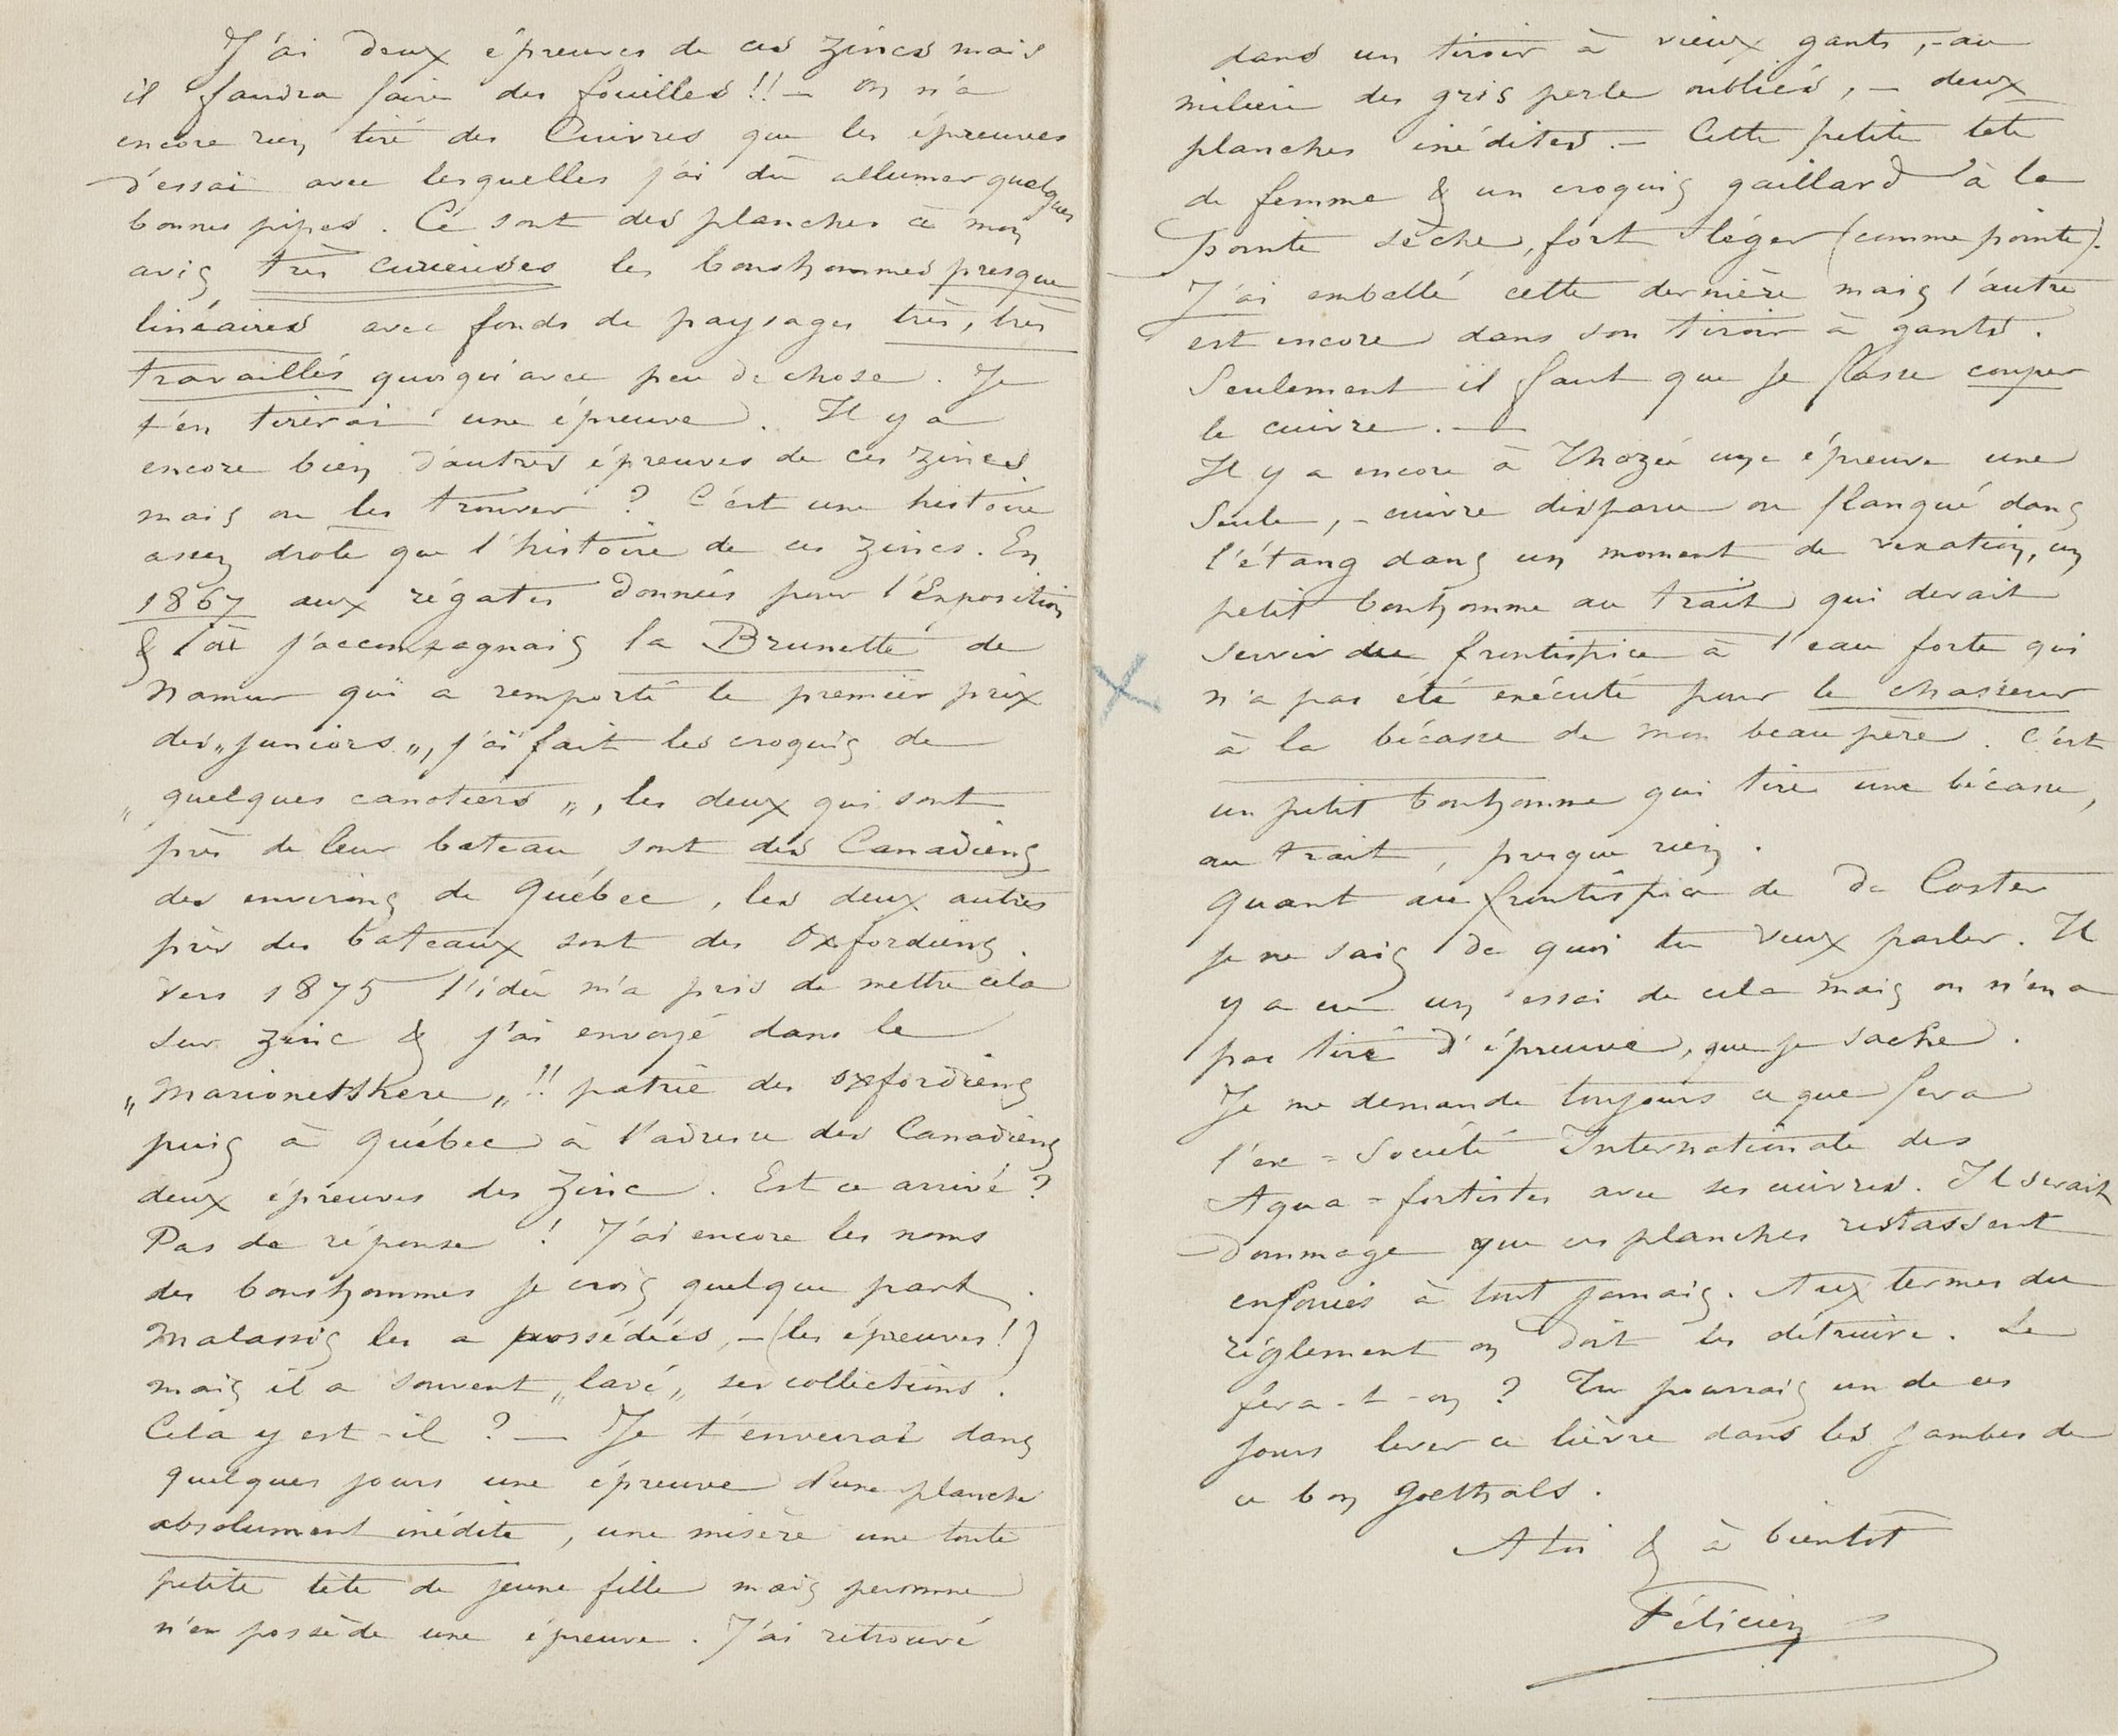 J'ai deux épreuves de ces zincs mais
il faudra faire des fouilles!! — On n'a
encore rien tiré des Cuivres que les épreuves
d'essai avec lesquelles j'ai dû allumer quelques
bonnes pipes. Ce sont des planches à mon
avis très curieuses les bonshommes presque
linéaires avec fonds de paysages très, très
travaillés quoiqu'avec peu de chose. Je
t'en tirerai une épreuve. Il y a
encore bien d'autres épreuves de ces zincs
mais où les trouver ? C'est une histoire
assez drole que l'histoire de ces zincs. En
1867 aux régates données pour l'Exposition
& où j'accompagnais la Brunette de
Namur qui a remporté le premier prix
des „juniors„, j'ai fait les croquis de
„quelques canotiers„, les deux qui sont
près de leur bateau sont des Canadiens
des environs de Québec, les deux autres
près des bateaux sont des Oxfordiens.
Vers 1875 l'idée m'a pris de mettre cela
sur zinc & j'ai envoyé dans le
„Marionetskere„!! patrie des oxfordiens
puis à Québec à l'adresse des Canadiens
deux épreuves des zinc. Est ce arrivé ?
Pas de réponse ! J'ai encore les noms
des bonshommes je crois quelque part.
Malassis les a possédées, — (les épreuves!)
mais il a souvent „lavé„ ses collections.
Cela y est-il ? — Je t'enverrai dans
quelques jours une épreuve d'une planche
absolument inédite, une misère une toute
petite tête de jeune fille mais personne
n'en possède une épreuve. J'ai retrouvé
dans un tiroir à vieux gants, - au
milieu des gris perle oubliés, — deux
planches inédites. — Cette petite tete
de femme & un croquis gaillard à la
pointe sèche, fort léger (comme pointe).
J'ai emballé cette dernière mais l'autre
est encore dans son tiroir à gants.
Seulement il faut que je fasse couper
le cuivre. —
Il y a encore à Thozée une épreuve une
seule, - cuivre disparu ou flanqué dans
l'étang dans un moment de vexation, un
petit bonhomme au trait qui devait
servir de frontispice à l'eau forte qui
n'a pas été exécuté pour le chasseur
à la bécasse de mon beau père. C'est
un petit bonhomme qui tire une bécasse,
au trait, presque rien.
Quant au frontispice de De Coster
je ne sais de quoi tu veux parler. Il
y a eu un essai de cela mais on n'en a
pas tiré d'épreuve, que je sache.
Je me demande toujours ce que fera
l'ex = Société Internationale des
Aqua = fortistes avec ses cuivres. Il serait
dommage que ces planches restassent
enfouies à tout jamais. Aux termes du
réglement on doit les détruire. Le
fera-t-on ? Tu pourrais un de ces
jours lever ce lièvre dans les jambes de
ce bon Goethals.
A toi & à bientôt
Félicien